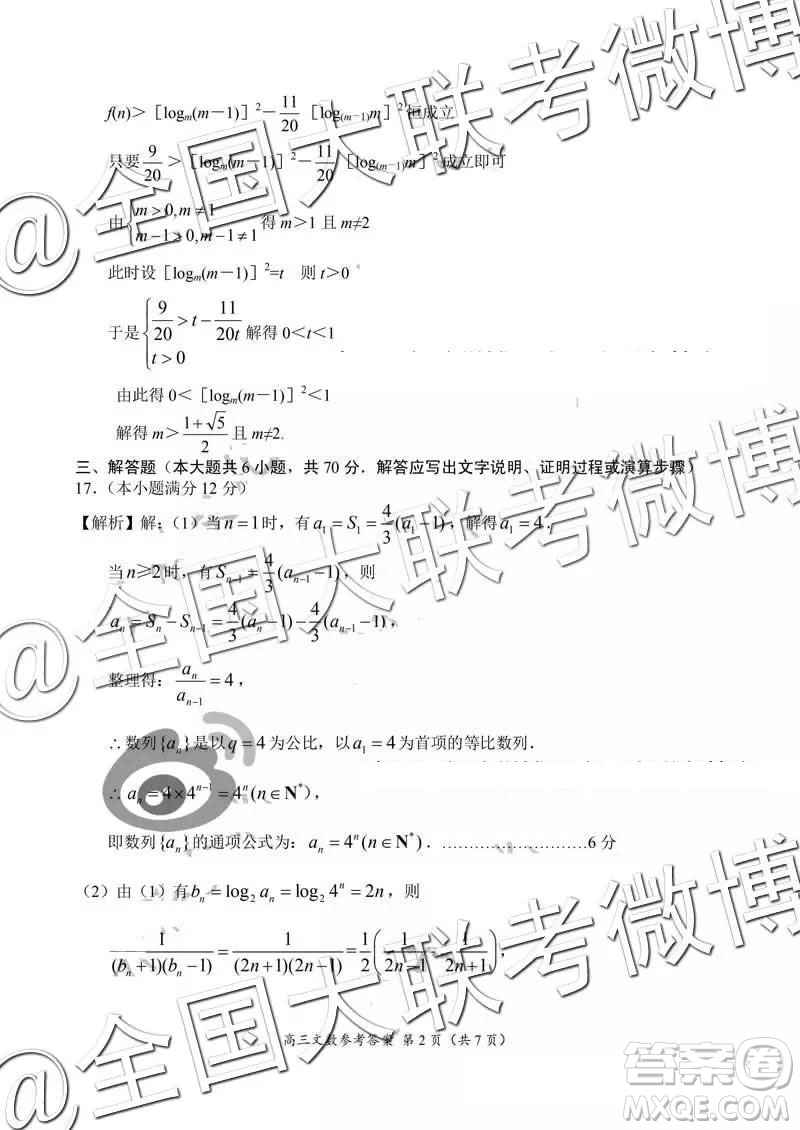 f(n)＞［logₘ(m－1)］²－11/20［log₍ₘ₋₁₎m］²恒成立
只要 9/20＞［logₘ(m－1)］²－11/20［log₍ₘ₋₁₎m］²成立即可
由{m＞0,m≠1
m－1＞0,m－1≠1 得 m＞1 且 m≠2
此时设［logₘ(m－1)］²=t 则 t＞0
于是{9/20＞t－11/20t
t＞0 解得 0＜t＜1
由此得 0＜［logₘ(m－1)］²＜1
解得 m＞(1+√5)/2 且 m≠2.
三、解答题（本大题共 6 小题，共 70 分．解答应写出文字说明、证明过程或演算步骤）
17．（本小题满分 12 分）
【解析】解：（1）当 n＝1 时，有 a₁＝S₁＝4/3(a₁－1)，解得 a₁＝4．
当 n≥2 时，有 Sₙ₋₁＝4/3(aₙ₋₁－1)，则
aₙ＝Sₙ－Sₙ₋₁＝4/3(aₙ－1)－4/3(aₙ₋₁－1)，
整理得：aₙ/aₙ₋₁＝4，
∴ 数列{aₙ}是以 q＝4 为公比，以 a₁＝4 为首项的等比数列．
∴ aₙ＝4×4ⁿ⁻¹＝4ⁿ(n∈N*)，
即数列{aₙ}的通项公式为：aₙ＝4ⁿ(n∈N*)．………………………6 分
（2）由（1）有 bₙ＝log₂aₙ＝log₂4ⁿ＝2n，则
1/((bₙ+1)(bₙ－1))＝1/((2n+1)(2n－1))＝1/2(1/(2n－1)－1/(2n+1))，
高三文数参考答案 第 2 页（共 7 页）
@全国大联考微博
@全国大联考微博
答案卷
MXQE.COM